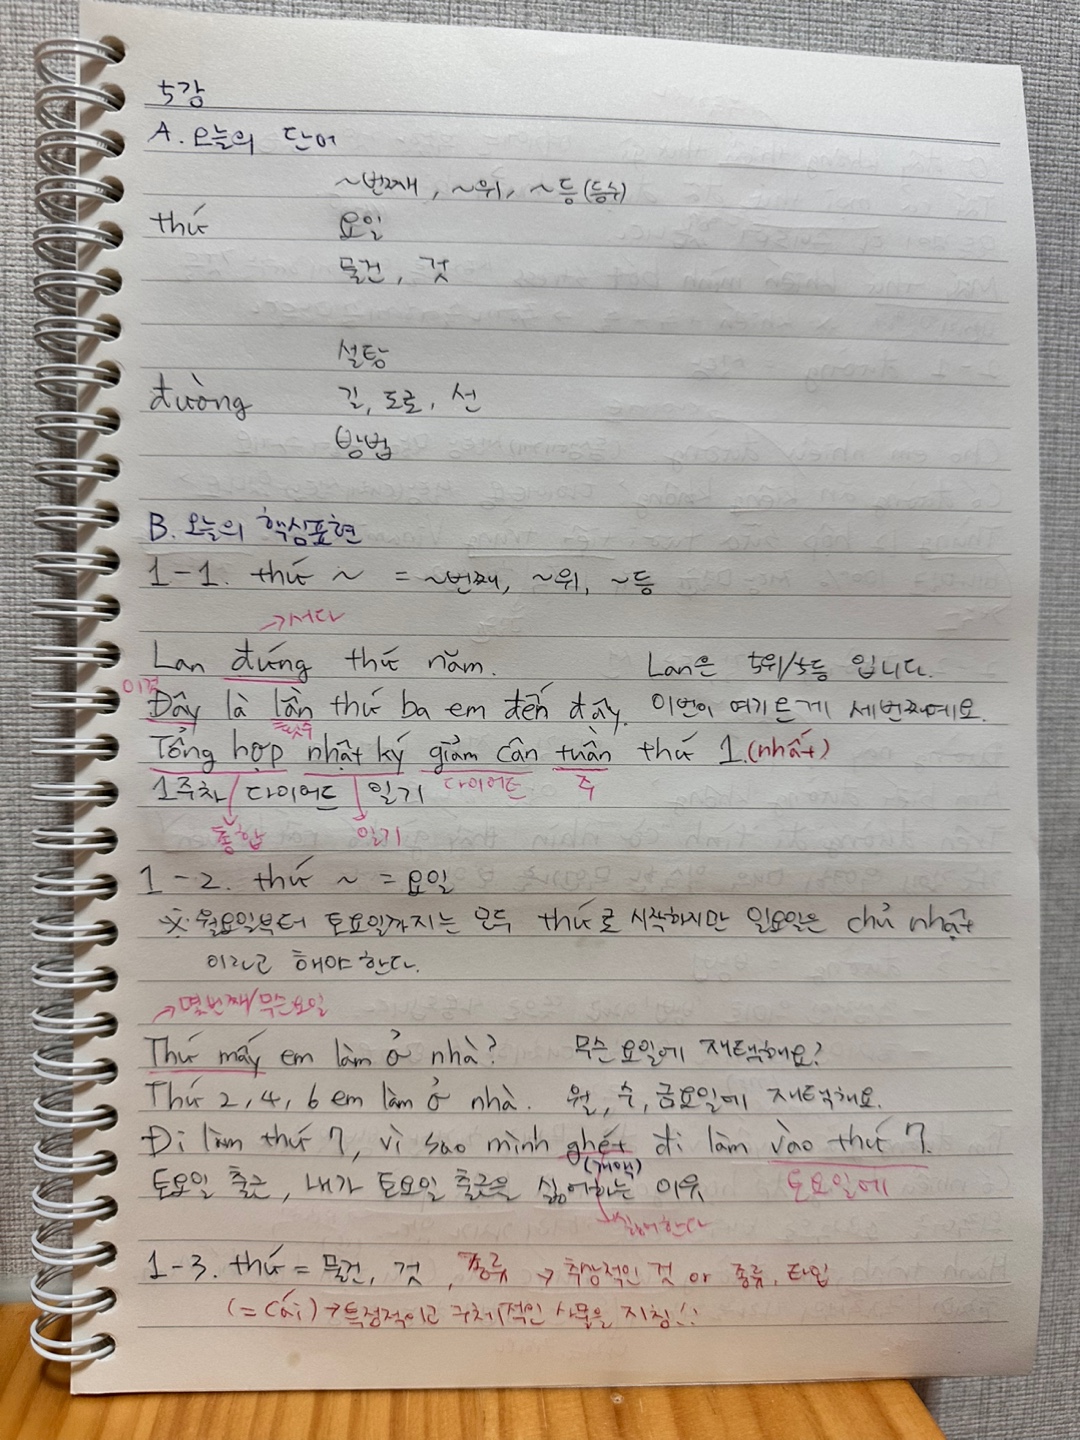 5강
A. 오늘의 단어
~번째, ~위, ~등(등수)
thứ 요일
물건, 것
설탕
đường 길, 도로, 선
방법
B. 오늘의 핵심표현
1-1. thứ ~ = ~번째, ~위, ~등
→서다
Lan đứng thứ năm. Lan은 5위/5등 입니다.
이것
Đây là lần thứ ba em đến đây. 이번이 여기 온게 세번째예요.
횟수
Tổng hợp nhật ký giảm cân tuần thứ 1.(nhất)
1주차 다이어트 일기 다이어트 주
종합 일기
1-2. thứ ~ = 요일
※ 월요일부터 토요일까지는 모두 thứ로 시작하지만 일요일은 chủ nhật
이라고 해야 한다.
→몇번째/무슨요일
Thứ mấy em làm ở nhà? 무슨 요일에 재택해요?
Thứ 2, 4, 6 em làm ở nhà. 월, 수, 금요일에 재택해요.
Đi làm thứ 7, vì sao mình ghét đi làm vào thứ 7.
토요일 출근, 내가 토요일 출근을 싫어하는 이유 토요일에
→싫어한다
1-3. thứ = 물건, 것, 종류 → 추상적인 것 or 종류, 타입
(= cái) → 특정적이고 구체적인 사물을 지칭!!